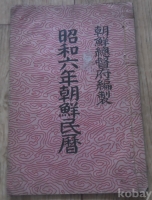 朝鮮總督府編製
昭和六年朝鮮民曆
daum